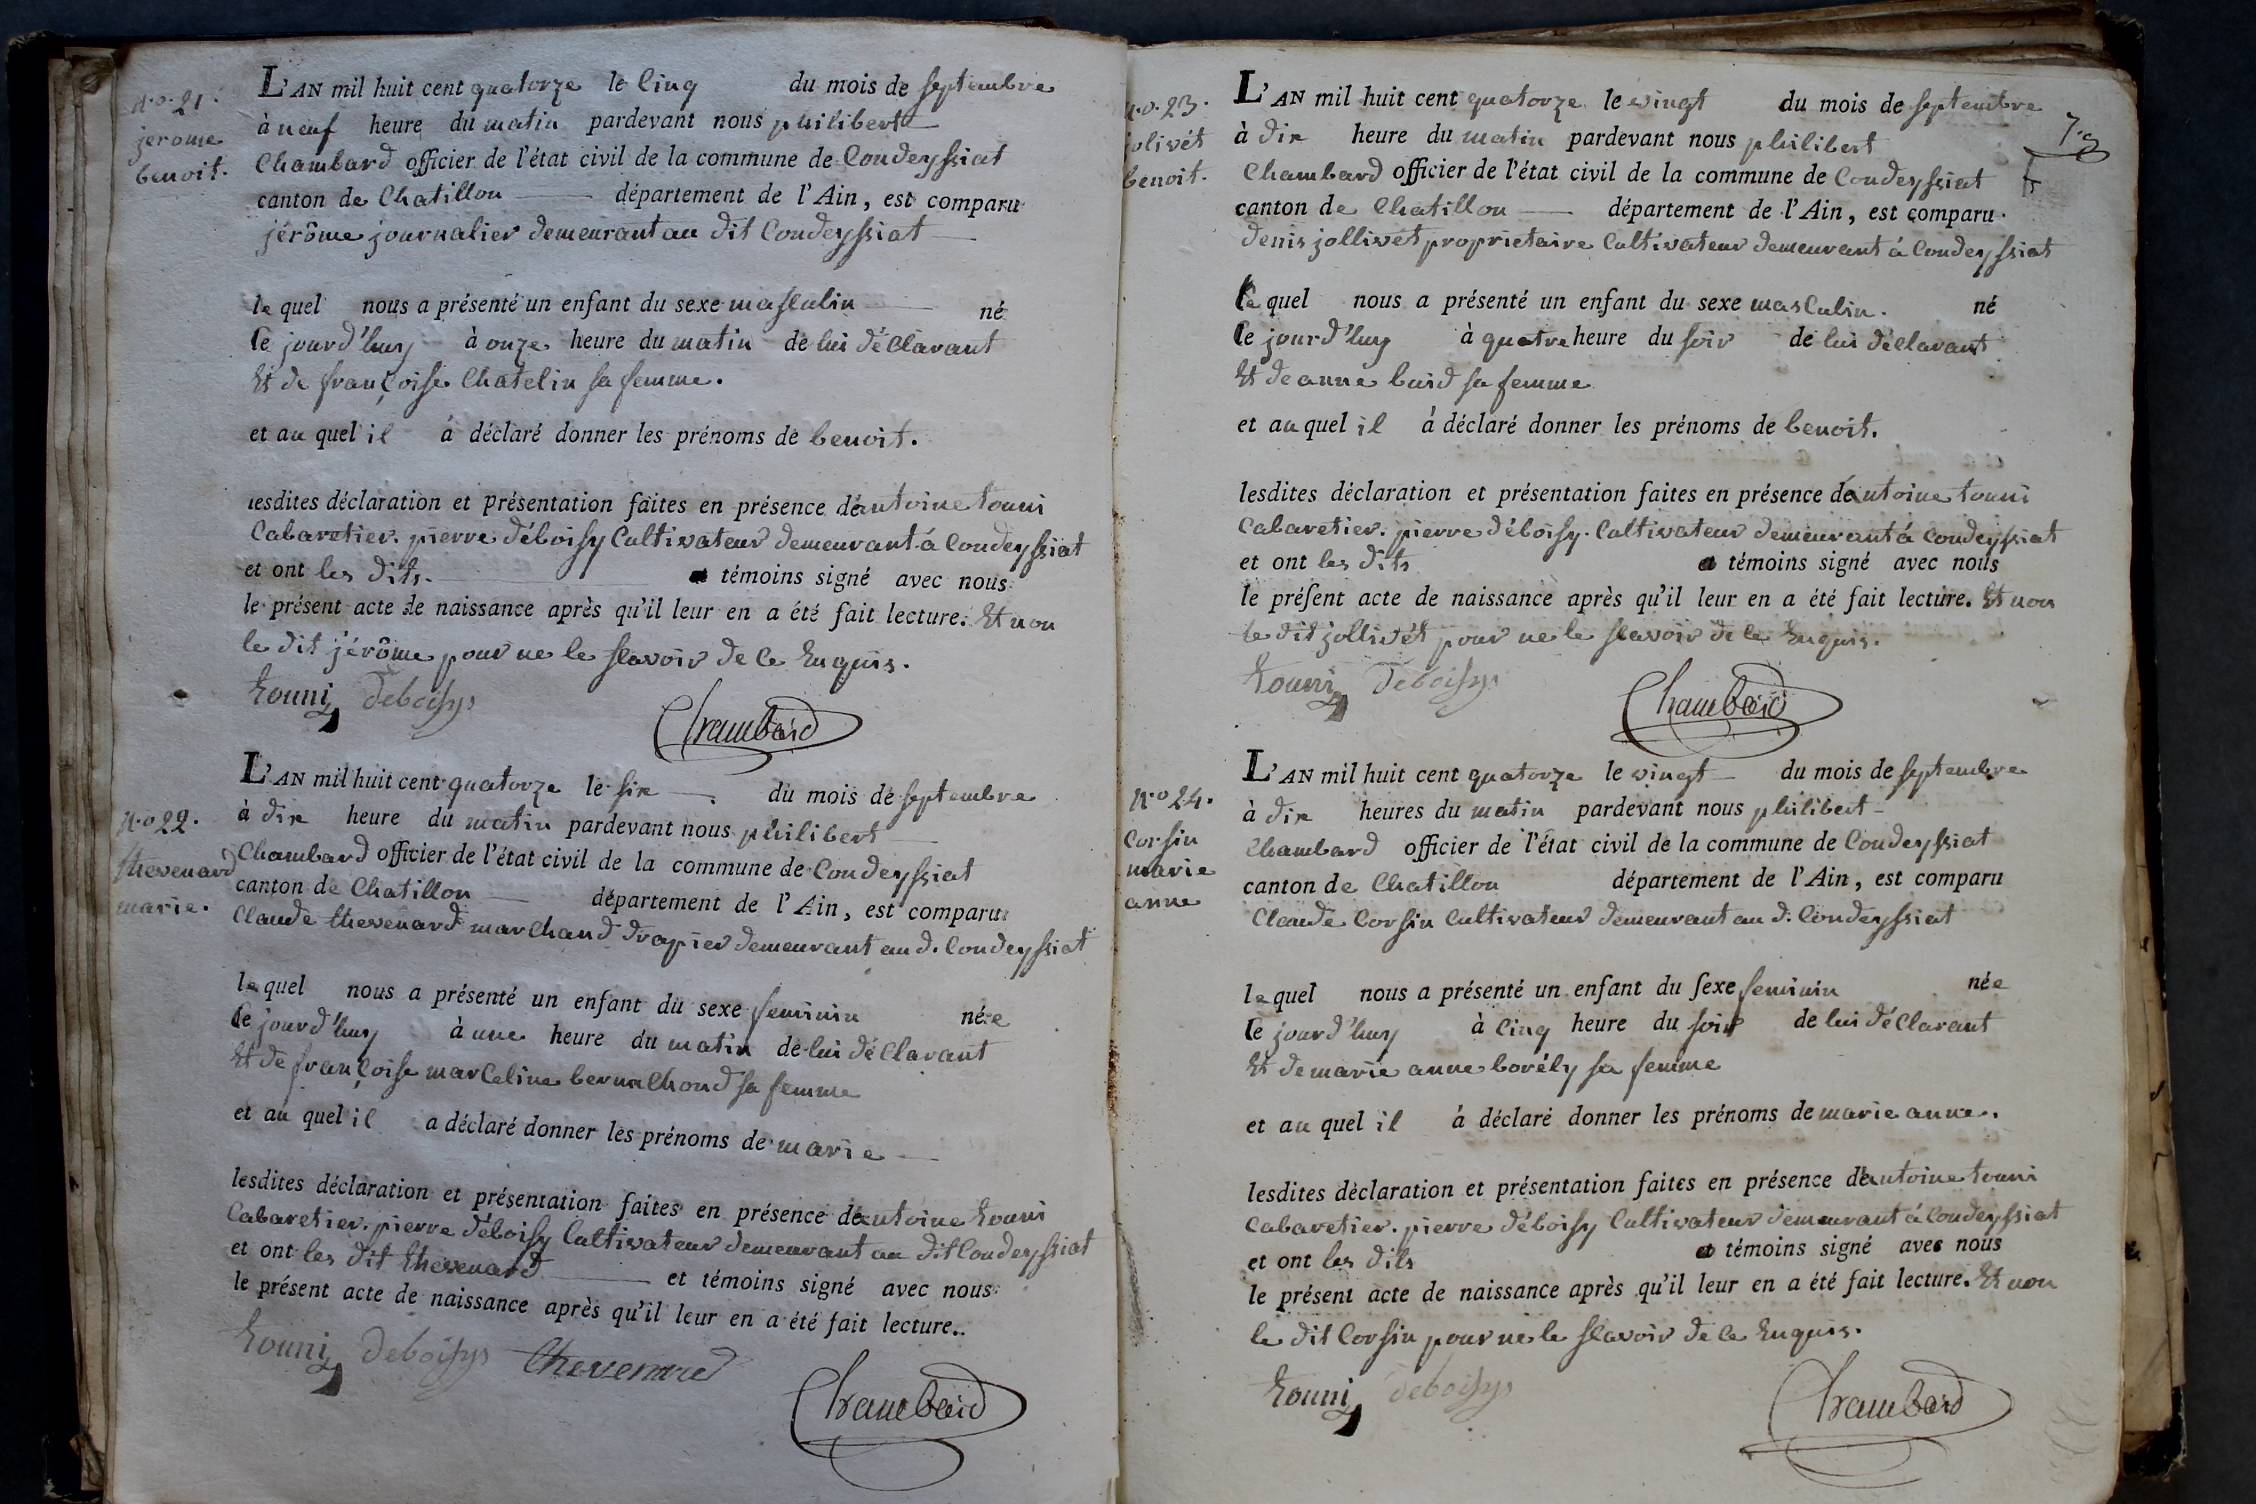 n.o. 21.
jerome
benoit.
L'AN mil huit cent quatorze le Cinq du mois de septembre
à neuf heure du matin pardevant nous philibert
Chambard officier de l'état civil de la commune de Condeyssiat
canton de Chatillon département de l'Ain, est comparu
jérôme journalier demeurant au dit Condeyssiat
le quel nous a présenté un enfant du sexe masculin né
Ce jourd'huy à onze heure du matin de lui déClarant
Et de françoise Chatelin sa femme.
et au quel il à déclaré donner les prénoms de benoit.
lesdites déclaration et présentation faites en présence de antoine touni
Cabaretier. pierre déboisy Cultivateur demeurant à Condeyssiat
et ont les dits. témoins signé avec nous
le présent acte de naissance après qu'il leur en a été fait lecture. Et non
le dit jérôme pour ne le scavoir de Ce Enquis.
touni deboisys
Chambard
n.o 22.
thevenard
marie.
L'AN mil huit cent quatorze le six du mois de septembre
à dix heure du matin pardevant nous philibert
Chambard officier de l'état civil de la commune de Condeyssiat
canton de Chatillon département de l'Ain, est comparu
Claude thevenard marchand drapier demeurant au d. Condeyssiat
le quel nous a présenté un enfant du sexe feminin née
Ce jourd'huy à une heure du matin de lui déClarant
Et de françoise marceline sa femme
et au quel il a déclaré donner les prénoms de marie
lesdites déclaration et présentation faites en présence de antoine touni
Cabaretier. pierre déboisy Cultivateur demeurant au dit Condeyssiat
et ont les dit thevenard et témoins signé avec nous
le présent acte de naissance après qu'il leur en a été fait lecture.
touni deboisys thevenard
Chambard
n.o. 23.
jolivét
benoit.
L'AN mil huit cent quatorze le vingt du mois de septembre
à dix heure du matin pardevant nous philibert
Chambard officier de l'état civil de la commune de Condeyssiat
canton de Chatillon département de l'Ain, est comparu
denis jollivét proprietaire Cultivateur demeurant à Condeyssiat
le quel nous a présenté un enfant du sexe masculin. né
Ce jourd'huy à quatre heure du soir de lui déClarant
Et de anne sa femme
et au quel il à déclaré donner les prénoms de benoit.
lesdites déclaration et présentation faites en présence de antoine touni
Cabaretier. pierre déboisy. Cultivateur demeurant à Condeyssiat
et ont les dits témoins signé avec nous
le présent acte de naissance après qu'il leur en a été fait lecture. Et non
le dit jollivét pour ne le scavoir de Ce Enquis.
touni deboisys
Chambard
n.o 24.
Corsin
marie
anne
L'AN mil huit cent quatorze le vingt du mois de septembre
à dix heures du matin pardevant nous philibert
Chambard officier de l'état civil de la commune de Condeyssiat
canton de Chatillon département de l'Ain, est comparu
Claude Corsin Cultivateur demeurant au d. Condeyssiat
le quel nous a présenté un enfant du sexe feminin née
Ce jourd'huy à Cinq heure du soir de lui déClarant
Et de marie anne borély sa femme
et au quel il à déclaré donner les prénoms de marie anne.
lesdites déclaration et présentation faites en présence de antoine touni
Cabaretier. pierre déboisy Cultivateur demeurant à Condeyssiat
et ont les dits témoins signé avec nous
le présent acte de naissance après qu'il leur en a été fait lecture. Et non
le dit Corsin pour ne le scavoir de Ce Enquis.
touni deboisys
Chambard